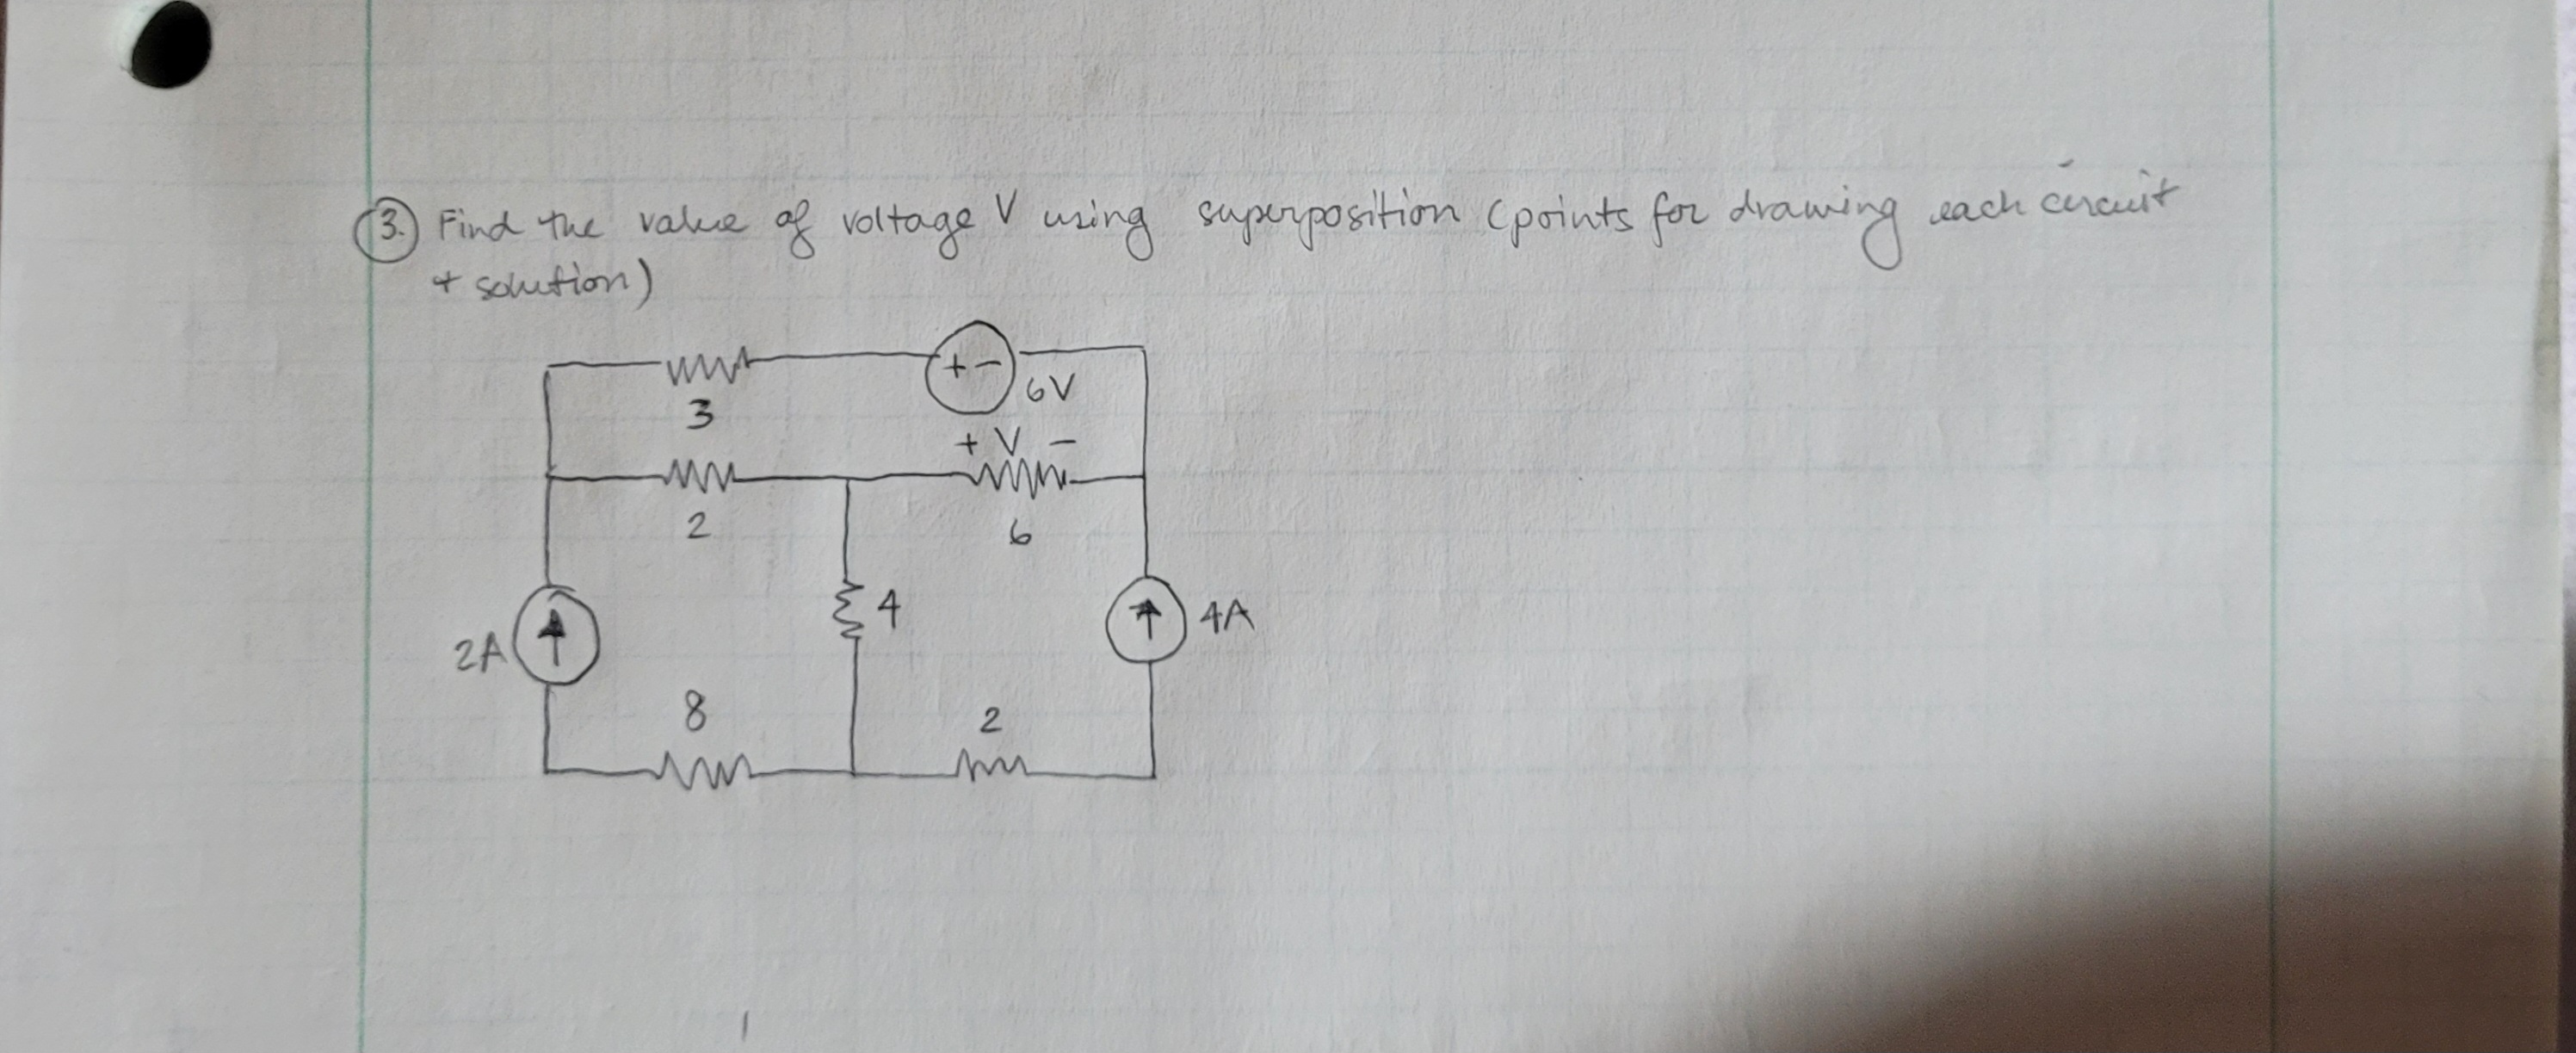 3. Find the value of voltage V using superposition (points for drawing each circuit
+ solution)
+ -
6V
3
+ V -
2
6
4
2A
4A
8
2